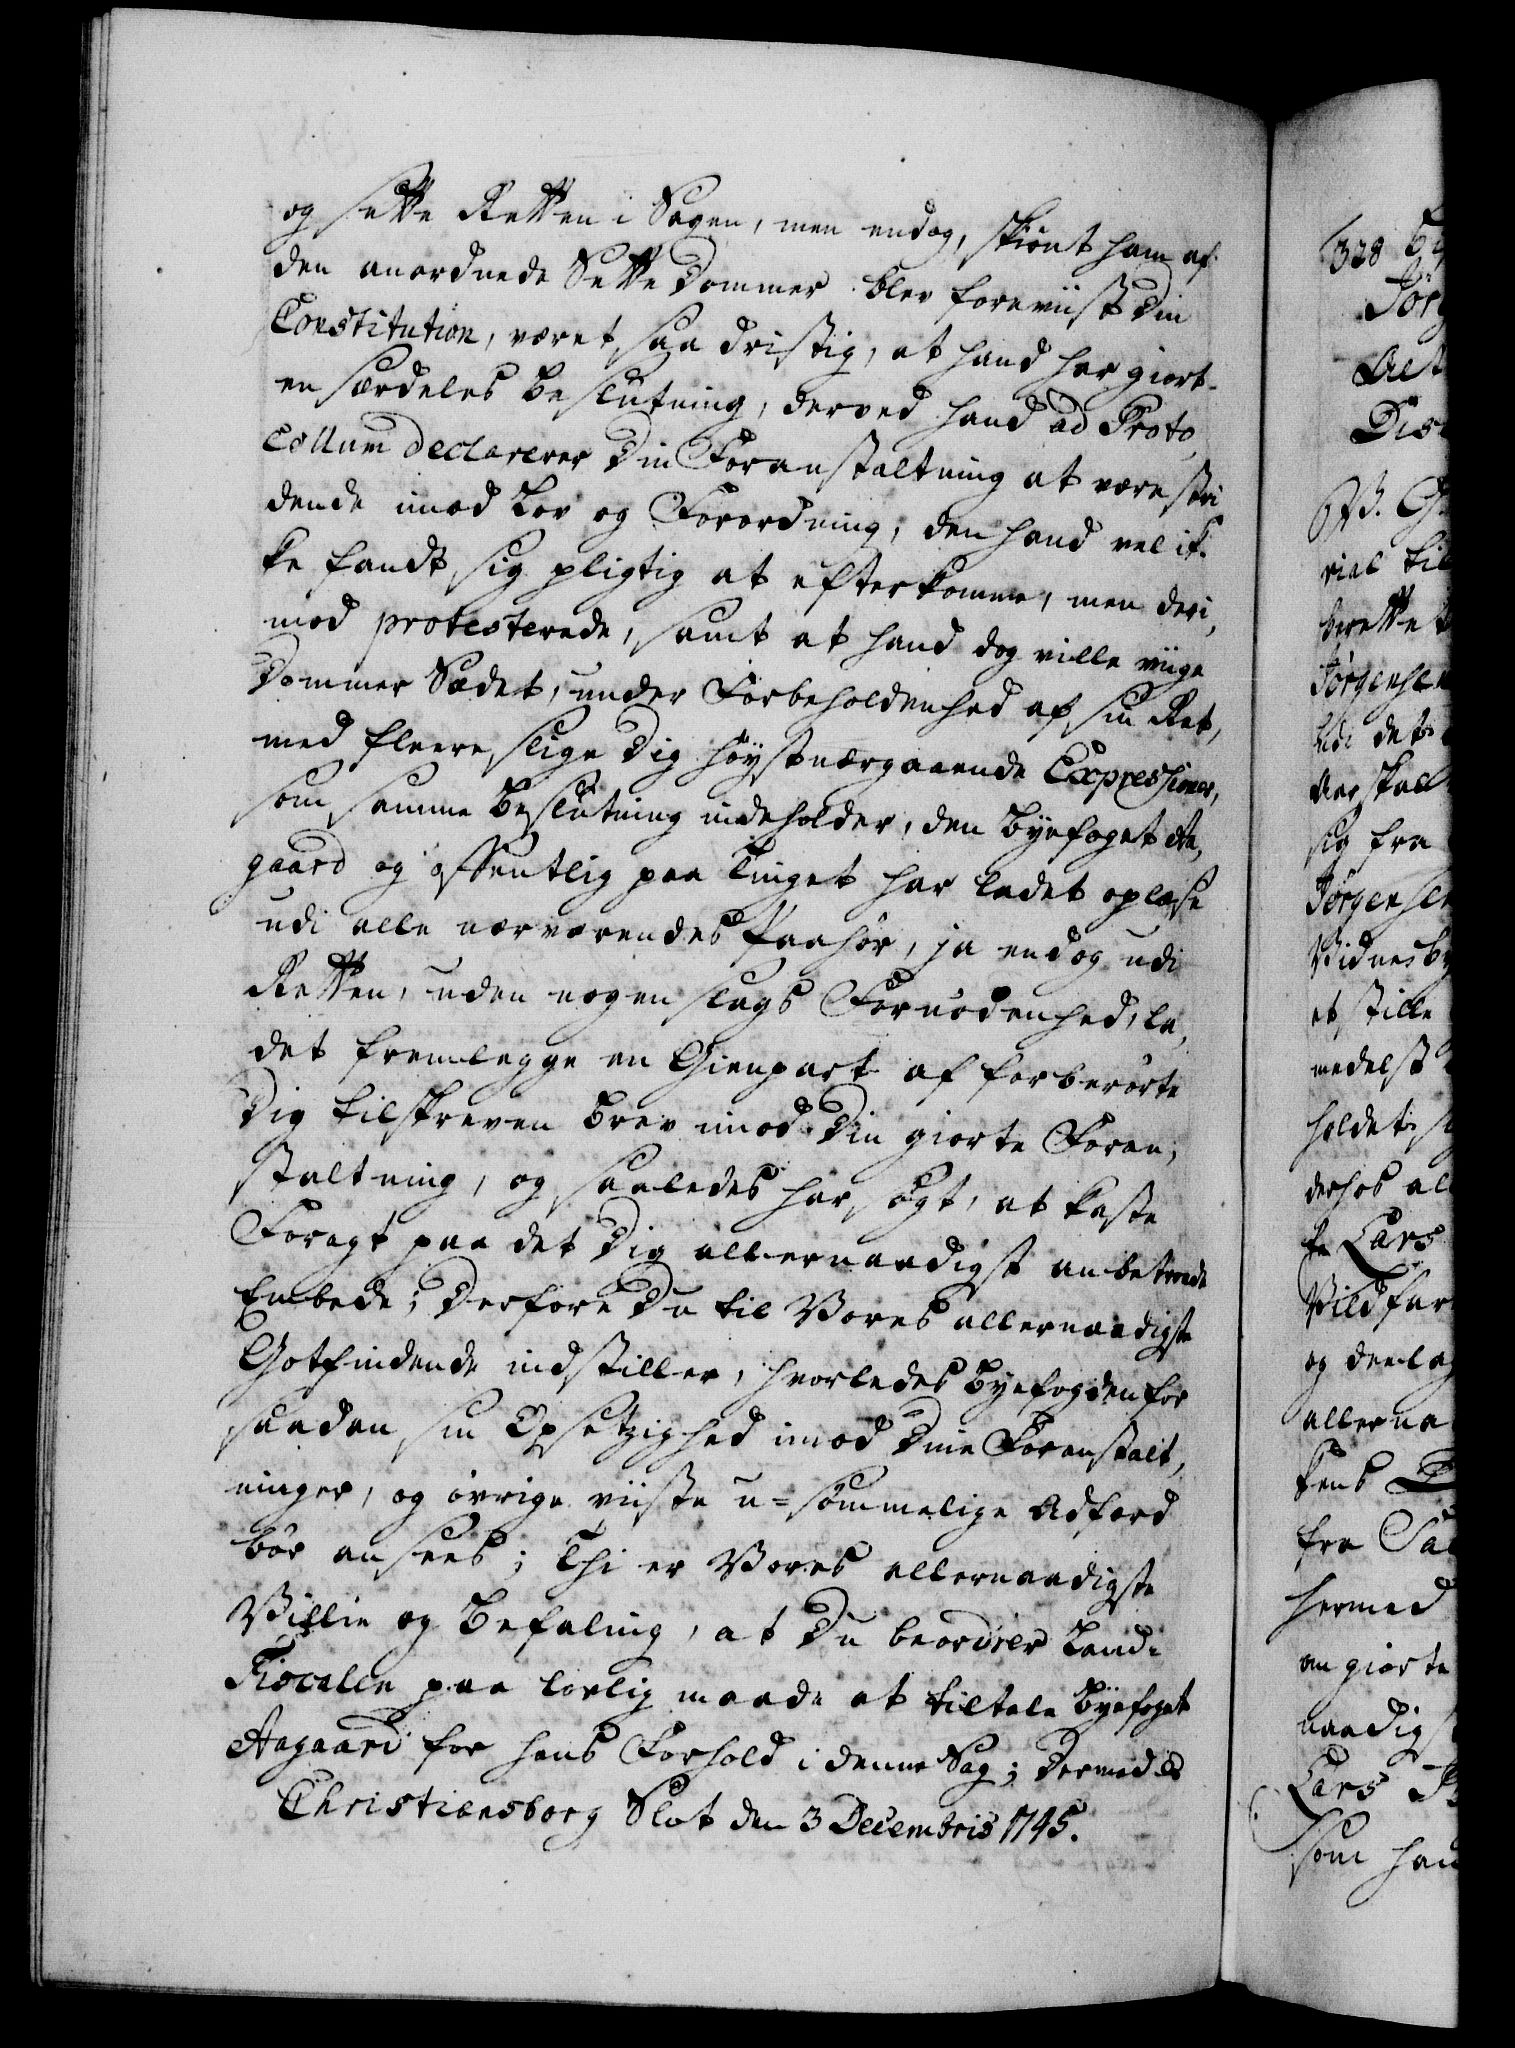 og sætte Retten i Sagen, men endog, skiønt ham af
den anordnede Sætte Dommer blev foreviist Din
Constitution, været saa dristig, at hand har giort
en særdeles Beslutning, derved hand ad Proto,
collum declarerer Din Foranstaltning at være stri
dende imod Lov og Forordning, den hand vel ik-
ke fandt sig pligtig at efterkomme, men deri,
mod protesterede, samt at hand dog ville viige
Dommer Sædet, under Forbeholdenhed af sin Ret,
med fleere slige Dig høystnærgaaende Expressioner,
som samme Beslutning indeholder, den Byefoget Aa,
gaard og offentlig paa Tinget har ladet oplæse
udi alle nærværendes Paahør, ja endog udi
Retten, uden nogen slags Fornødenhed, la,
det fremlegge en Gienpart af forberørte
Dig tilskreven Brev imod Din giorte Foran,
staltning, og saaledes har søgt, at kaste
Foragt paa det Dig allernaadigst anbetroede
Embede; Derfore Du til Vores allernaadigste
Gotfindende indstiller, hvorledes Byefogden for
saadan sin Opsetzighed imod Dine Foranstalt,
ninger, og øvrige viiste u=sømmelige Adfærd
bør ansees; Thi er Vores allernaadigste
Villie og Befaling, at Du beordrer Land-
Fiscalen paa lovlig maade at tiltale Byefoget
Aagaard for hans Forhold i denne Sag; Dermed &c
Christiansborg Slot den 3 Decembris 1745.
328
Jørg
Dis
rial til
berette
Jørgensen
udi det
Aar skall
sig fra
Jørgensen
Vidnesby
at stille
medelst
holdet
derhos al
Lars
Vildfar
og deel
allerna
kens
fra
hermed
angiorte
naadig
Lars
som han